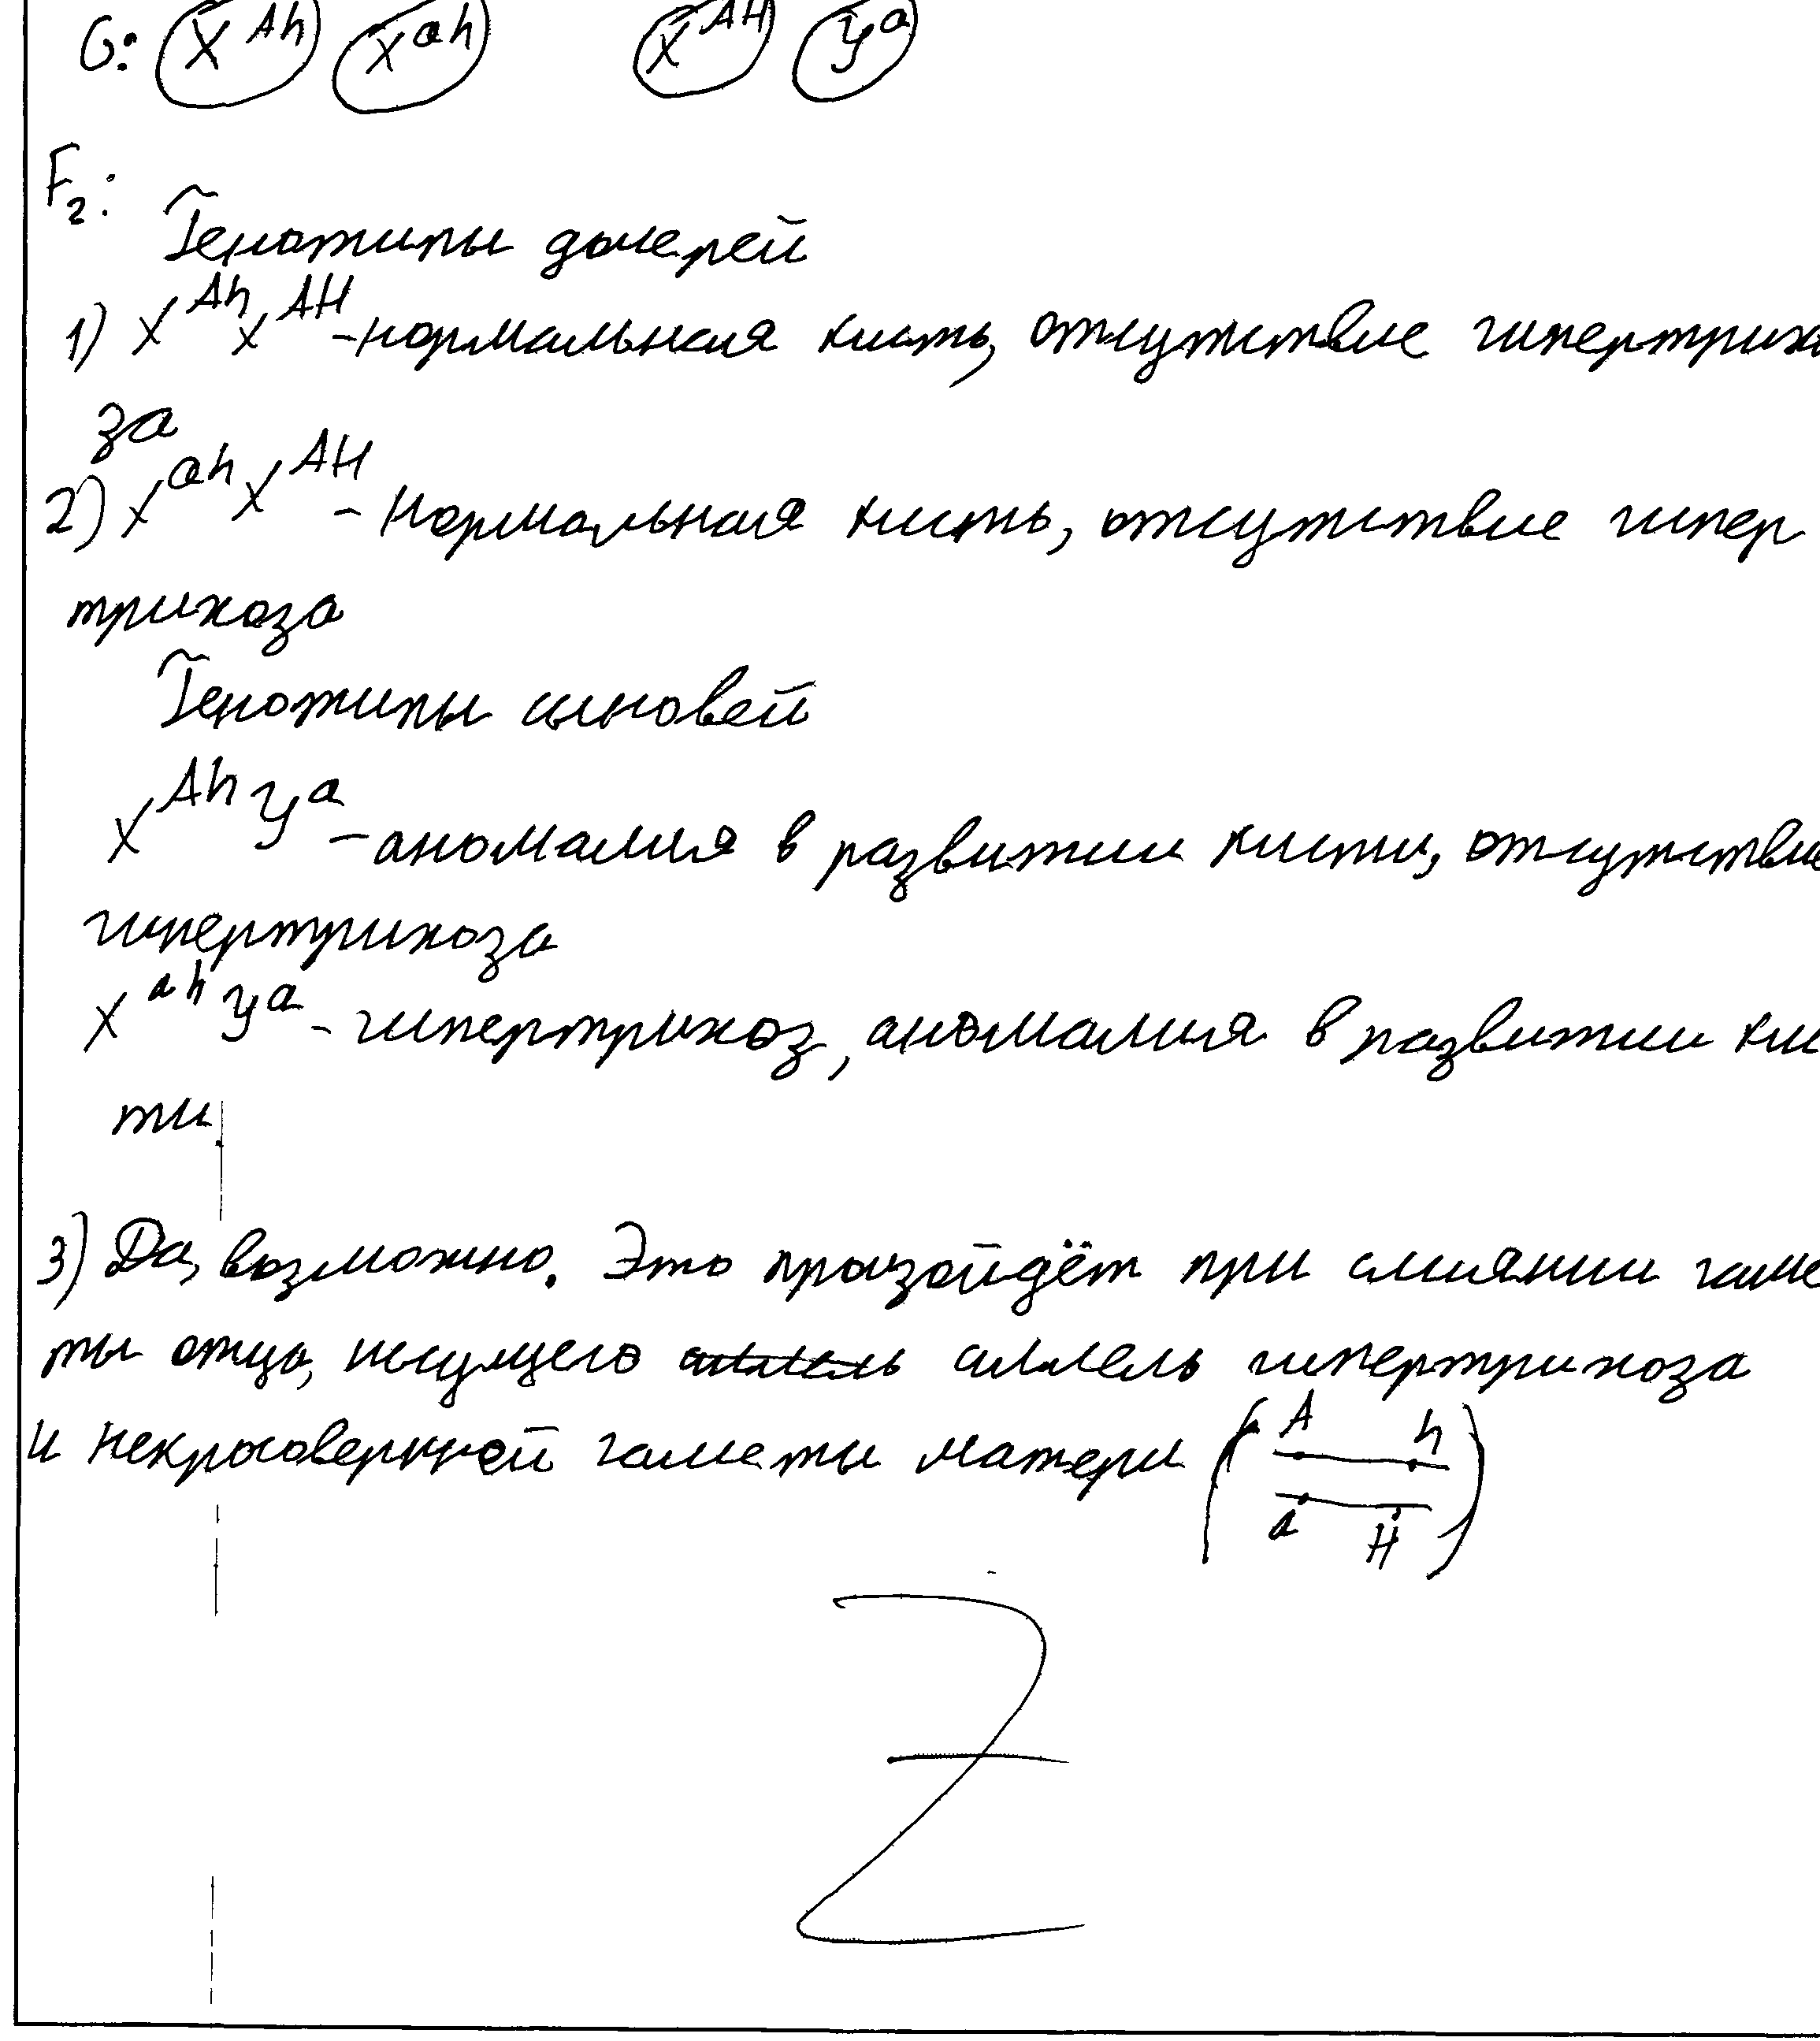 G: X^Ah X^ah X^AH У^a
F₂:
Генотипы дочерей
1) X^Ah X^AH - нормальная кисть, отсутствие гипертрихо
за
2) X^ah X^AH - нормальная кисть, отсутствие гипер
трихоза
Генотипы сыновей
X^Ah У^a - аномалия в развитии кисти, отсутствие
гипертрихоза
X^ah У^a - гипертрихоз, аномалия в развитии кис
ти.
3) Да, возможно. Это произойдёт при слиянии гаме
ты отца, несущего аллель аллель гипертрихоза
и некроссоверной гаметы матери ( A h
a H )
Z